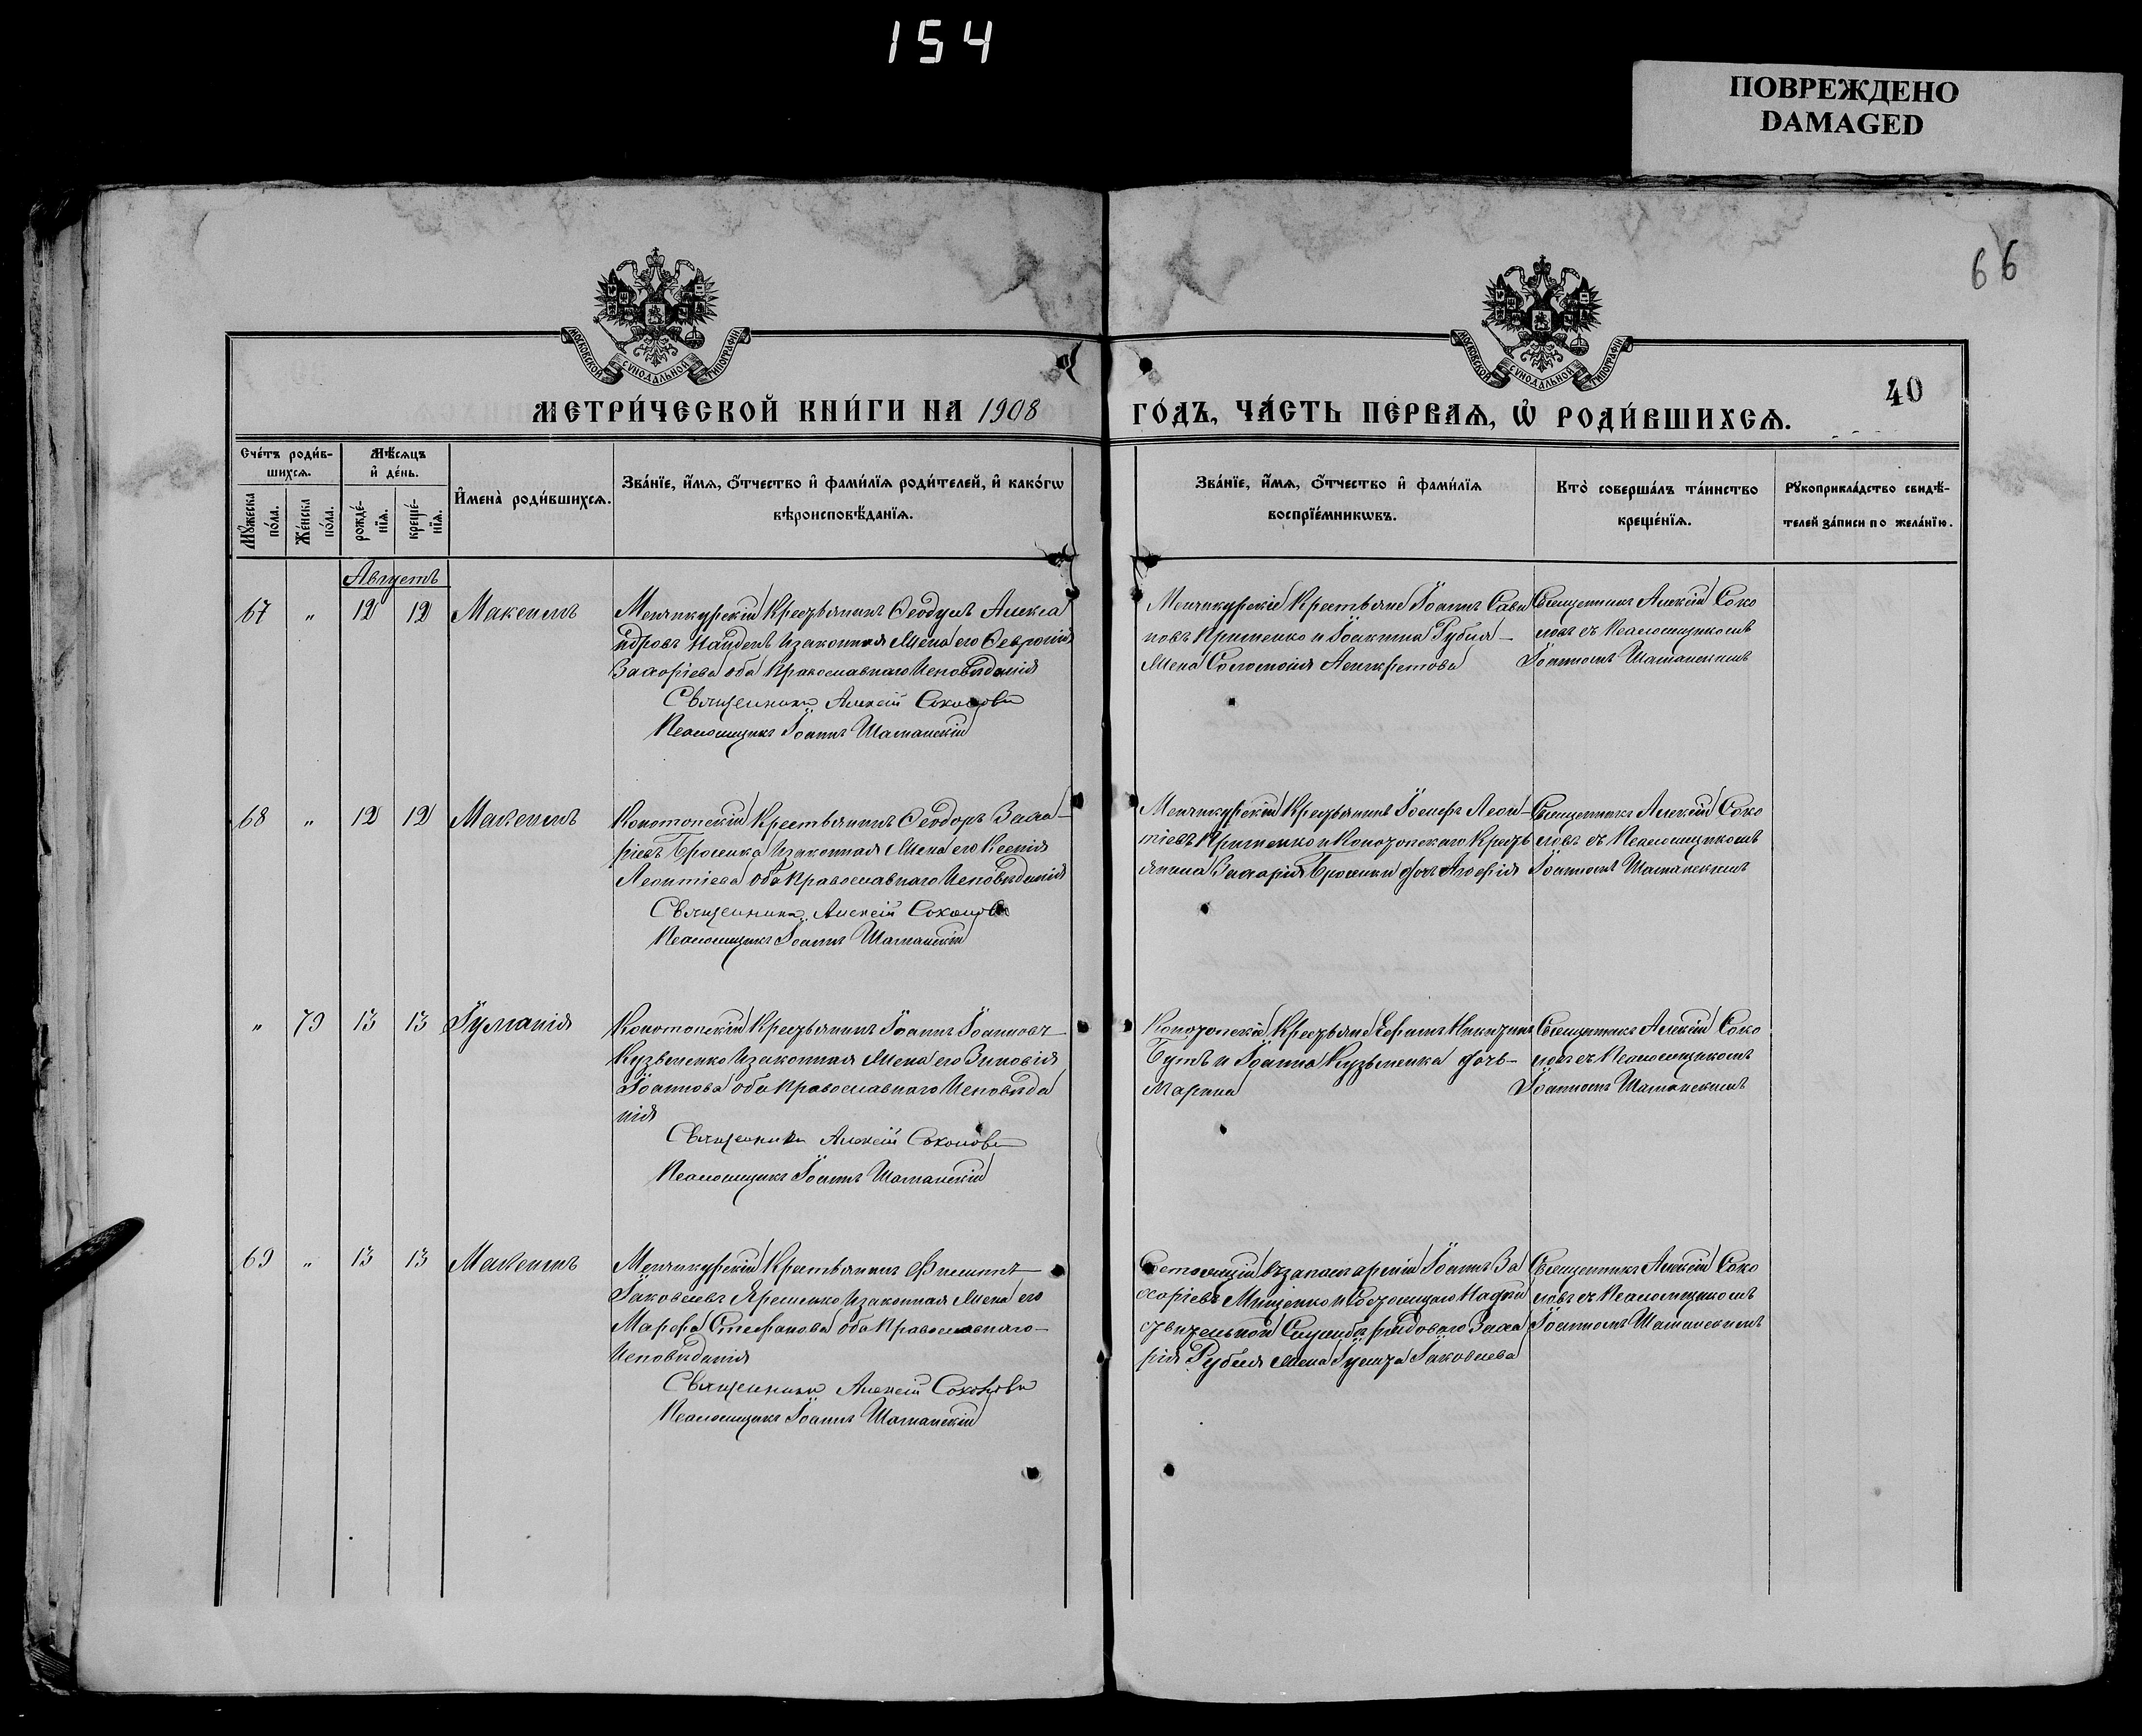 154
ПОВРЕЖДЕНО
DAMAGED
66
МОСКОВСКОЙ СѴНОДАЛЬНОЙ ТИПОГРАФІИ
МОСКОВСКОЙ СѴНОДАЛЬНОЙ ТИПОГРАФІИ
40
МЕТРИ́ЧЕСКОЙ КНИ́ГИ НА 1908
ГО́ДЪ, ЧА́СТЬ ПЕ́РВАѦ, Ѡ҆ РОДИ́ВШИХСѦ.
Счє́тъ роди́в-
шихсѧ.
Мѣ́сѧцъ
и҆ де́нь.
Мꙋ́жеска
по́ла.
Же́нска
по́ла.
рожде́-
нїѧ.
креще́-
нїѧ.
И҆мена̀ роди́вшихсѧ.
Зва́нїе, и҆́мѧ, ѻ҆́тчество и҆ фами́лїѧ роди́телей, и҆ како́гѡ
вѣроисповѣ́данїѧ.
Зва́нїе, и҆́мѧ, ѻ҆́тчество и҆ фами́лїѧ
воспрїе́мникѡвъ.
Кто̀ соверша́лъ та́инство
креще́нїѧ.
Рꙋкоприкла́дство свидѣ́-
телей за́писи по жела́нїю.
Августъ
67 " 12 12 Максимъ
Менчикурскій Крестьянинъ Ѳеодулъ Алекса
ндровъ Найденъ и законная жена его Февронія
Захаріева оба Православнаго Исповѣданія
Священникъ Алексій Соколовъ
Псаломщикъ Іоаннъ Шаманскій
Менчикурскіе Крестьяне Іоаннъ Сави
новъ Приженко и Іоакима Рубля
жена Соломонія
Священникъ Алексій Соко
ловъ съ Псаломщикомъ
Іоанномъ Шаманскимъ
68 " 12 12 Максимъ
Конотопскій Крестьянинъ Ѳеодоръ Заха-
ріевъ и законная жена его Ксенія
Леонтіева оба Православнаго Исповѣданія
Священникъ Алексій Соколовъ
Псаломщикъ Іоаннъ Шаманскій
Менчикурскій Крестьянинъ Іосифъ Леон-
тіевъ и Конотопскаго Кресть
янина Захарія дочь
Священникъ Алексій Соко
ловъ съ Псаломщикомъ
Іоанномъ Шаманскимъ
" 79 13 13 Іуліанія
Конотопскій Крестьянинъ Іоаннъ Іоанновъ
Кузьменко и законная жена его Зиновія
Іоаннова оба Православнаго Исповѣда
нія
Священникъ Алексій Соколовъ
Псаломщикъ Іоаннъ Шаманскій
Конотопскіе Крестьяне Ефимъ Никитинъ
Бутъ и Іоанна Кузьменка дочь
Марина
Священникъ Алексій Соко
ловъ съ Псаломщикомъ
Іоанномъ Шаманскимъ
69 " 13 13 Максимъ
Менчикурскій Крестьянинъ Филиппъ
Іаковлевъ Яременко и законная жена его
Марфа Стефанова оба Православнаго
Исповѣданія
Священникъ Алексій Соколовъ
Псаломщикъ Іоаннъ Шаманскій
Состоящій въ запасѣ арміи Іоаннъ За
харіевъ Мищенко и Состоящаго на дѣй
ствительной Службѣ рядоваго Заха
рія Рубля жена Іулита Іаковлева
Священникъ Алексій Соко
ловъ съ Псаломщикомъ
Іоанномъ Шаманскимъ